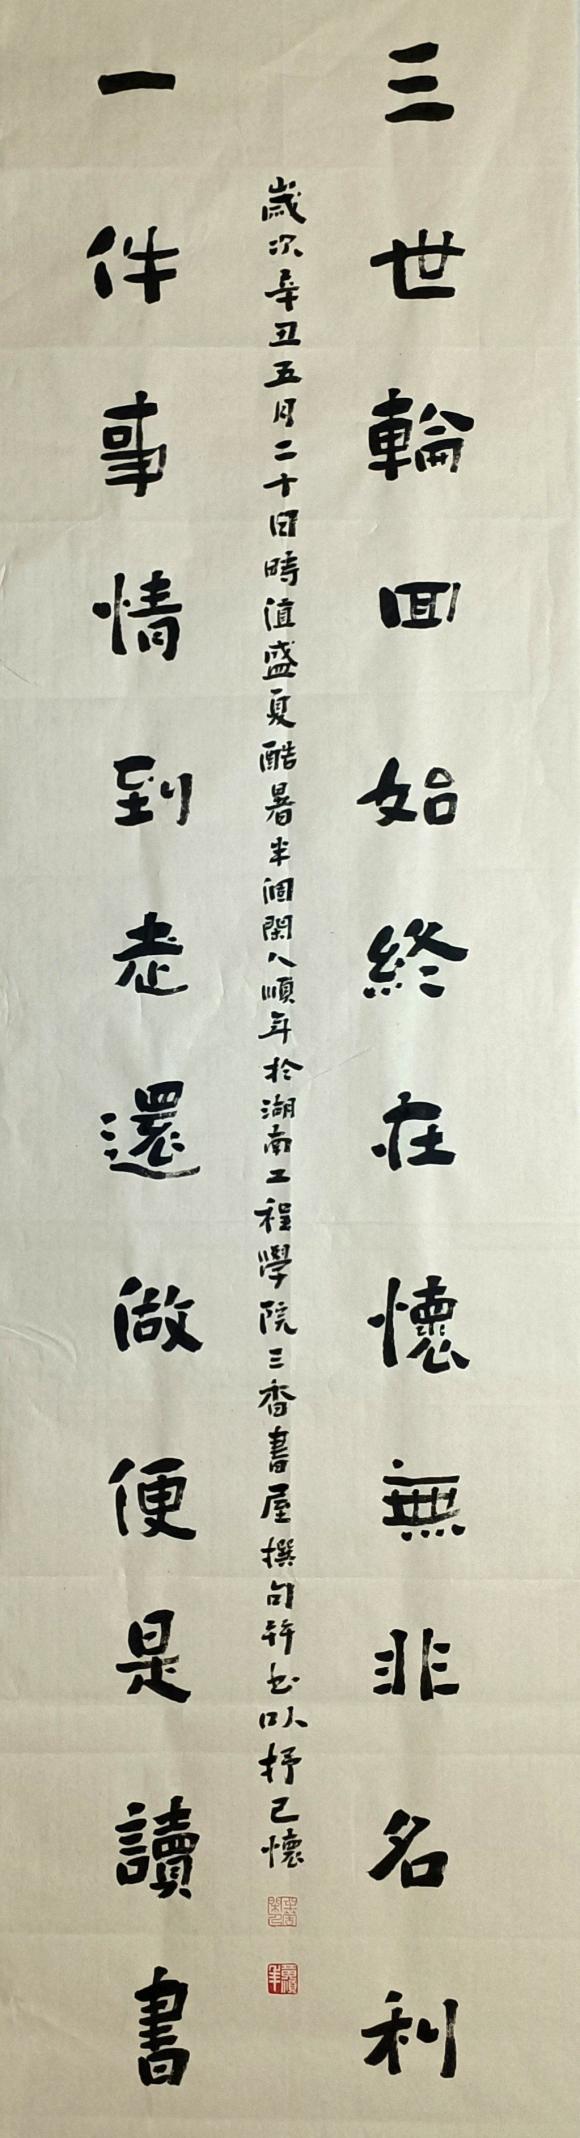 三世輪回始終在懷無非名利
歲次辛丑五月二十日時值盛夏酷暑半個閑人順年於湖南工程學院三香書屋撰句并書以抒己懷
一件事情到老還做便是讀書